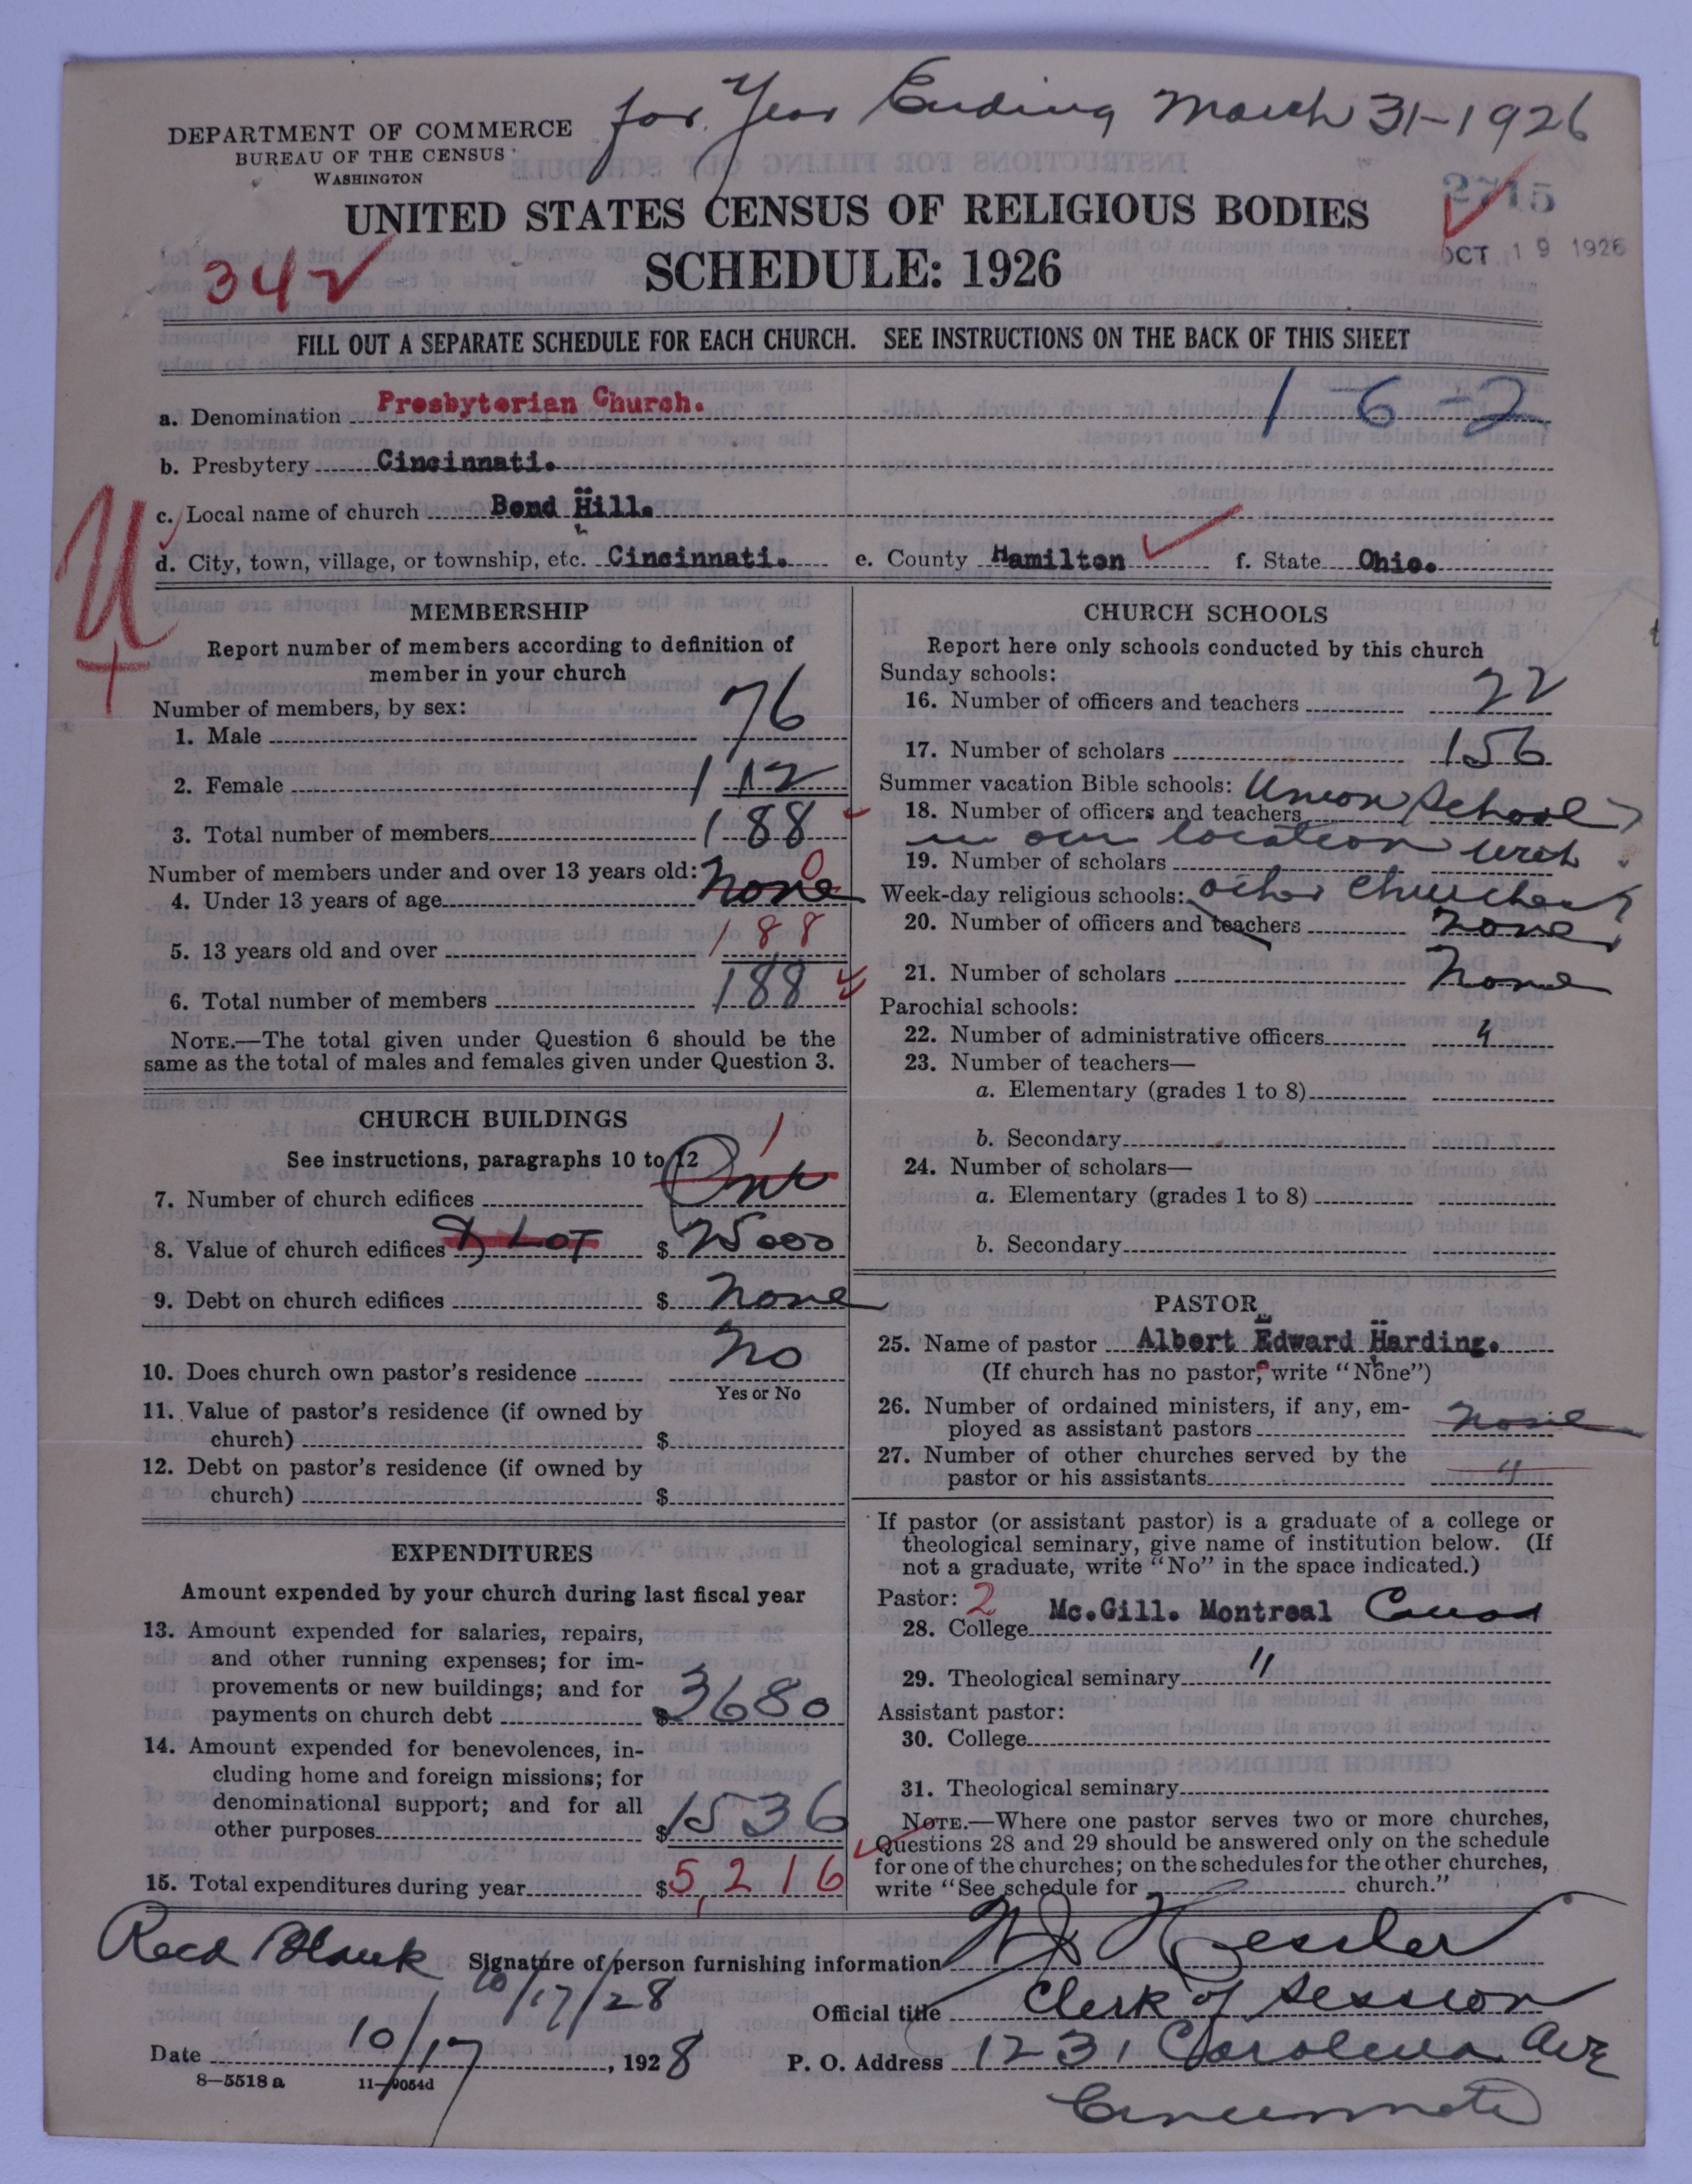 for Year Ending March 31-1926
DEPARTMENT OF COMMERCE
BUREAU OF THE CENSUS
WASHINGTON
2715
UNITED STATES CENSUS OF RELIGIOUS BODIES
OCT 19 1926
342
SCHEDULE: 1926
FILL OUT A SEPARATE SCHEDULE FOR EACH CHURCH. SEE INSTRUCTIONS ON THE BACK OF THIS SHEET
a. Denomination Presbyterian Church. 1-6-2
b. Presbytery Cincinnati.
c. Local name of church Bond Hill.
d. City, town, village, or township, etc. Cincinnati. e. County Hamilton f. State Ohio.
U
+
MEMBERSHIP
Report number of members according to definition of
member in your church
Number of members, by sex:
1. Male 76
2. Female 112
3. Total number of members 188
Number of members under and over 13 years old: 0
4. Under 13 years of age none
5. 13 years old and over 188
6. Total number of members 188
NOTE.—The total given under Question 6 should be the
same as the total of males and females given under Question 3.
CHURCH BUILDINGS
See instructions, paragraphs 10 to 12 1
7. Number of church edifices One
8. Value of church edifices & LOT $ 25000
9. Debt on church edifices $ none
10. Does church own pastor's residence no
Yes or No
11. Value of pastor's residence (if owned by
church) $
12. Debt on pastor's residence (if owned by
church) $
EXPENDITURES
Amount expended by your church during last fiscal year
13. Amount expended for salaries, repairs,
and other running expenses; for im-
provements or new buildings; and for
payments on church debt $ 3680
14. Amount expended for benevolences, in-
cluding home and foreign missions; for
denominational support; and for all
other purposes $ 1536
15. Total expenditures during year $ 5,216
CHURCH SCHOOLS
Report here only schools conducted by this church
Sunday schools:
16. Number of officers and teachers 22
17. Number of scholars 156
Summer vacation Bible schools: Union School
18. Number of officers and teachers
in our location with
19. Number of scholars
Week-day religious schools: other Churches
20. Number of officers and teachers none
21. Number of scholars none
Parochial schools:
22. Number of administrative officers 4
23. Number of teachers—
a. Elementary (grades 1 to 8)
b. Secondary
24. Number of scholars—
a. Elementary (grades 1 to 8)
b. Secondary
PASTOR
25. Name of pastor Albert Edward Harding.
(If church has no pastor, write "None")
26. Number of ordained ministers, if any, em-
ployed as assistant pastors none
27. Number of other churches served by the
pastor or his assistants
If pastor (or assistant pastor) is a graduate of a college or
theological seminary, give name of institution below. (If
not a graduate, write "No" in the space indicated.)
Pastor: 2
28. College Mc.Gill. Montreal Canad
29. Theological seminary "
Assistant pastor:
30. College
31. Theological seminary
NOTE.—Where one pastor serves two or more churches,
Questions 28 and 29 should be answered only on the schedule
for one of the churches; on the schedules for the other churches,
write "See schedule for church."
Recd Blank 10/17/28
Signature of person furnishing information W J Kessler
Official title Clerk of Session
Date 10/17, 1928 P. O. Address 1231 Carolina Ave
Cincinnati
8—5518 a 11—9054d